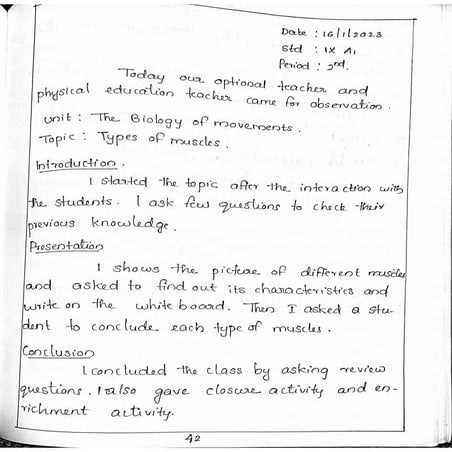 Date : 16/1/2023
Std : IX A1
Period : 2nd.
Today our optional teacher and
physical education teacher came for observation.
Unit : The Biology of movements.
Topic : Types of muscles.
Introduction.
I started the topic after the interaction with
the students. I ask few questions to check their
previous knowledge.
Presentation
I shows the picture of different muscles
and asked to find out its characteristics and
write on the white board. Then I asked a stu-
dent to conclude each type of muscles.
Conclusion
I concluded the class by asking review
questions. I also gave closure activity and en-
richment activity.
42